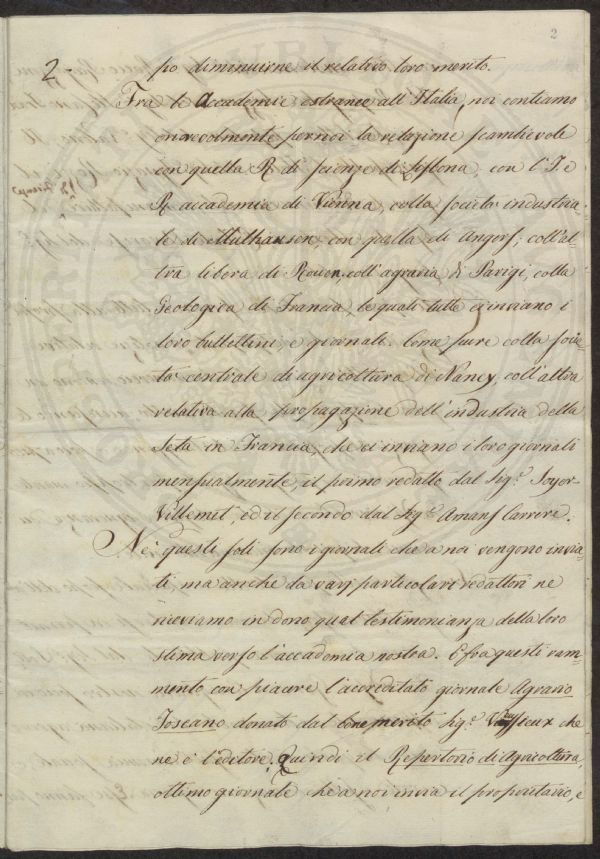 2
2.
po diminuirne il relativo loro merito.
Fra le accademie estranee all'Italia, noi contiamo
onorevolmente per noi la relazione scambievole
con quella R. di scienze di Lisbona, con l'I. e
R. accademia di Vienna, colla società industria-
le di Mulhausen, con quella di Angers; coll'al-
tra libera di Rouen, coll'agraria di Parigi, colla
Geologica di Francia, le quali tutte ci inviano i
loro bullettini e giornali. Come pure colla socie-
tà centrale di agricoltura di Nancy, coll'altra
relativa alla propagazione dell'industria della
seta in Francia, che ci inviano i loro giornali
mensualmente, il primo redatto dal Sig.r Soyer-
Villemet, ed il secondo dal Sig.r Amans Carrere.
Nè questi soli sono i giornali che a noi vengono invia-
ti ma anche da varj particolari redattori ne
riceviamo in dono qual testimonianza della loro
stima verso l'accademia nostra. E fra questi ram-
mento con piacere l'accreditato giornale Agrario
Toscano donato dal benemerito Sig.r Vieusseux che
ne è l'editore, quindi il Repertorio di Agricoltura,
ottimo giornale che a noi invia il proprietario, e